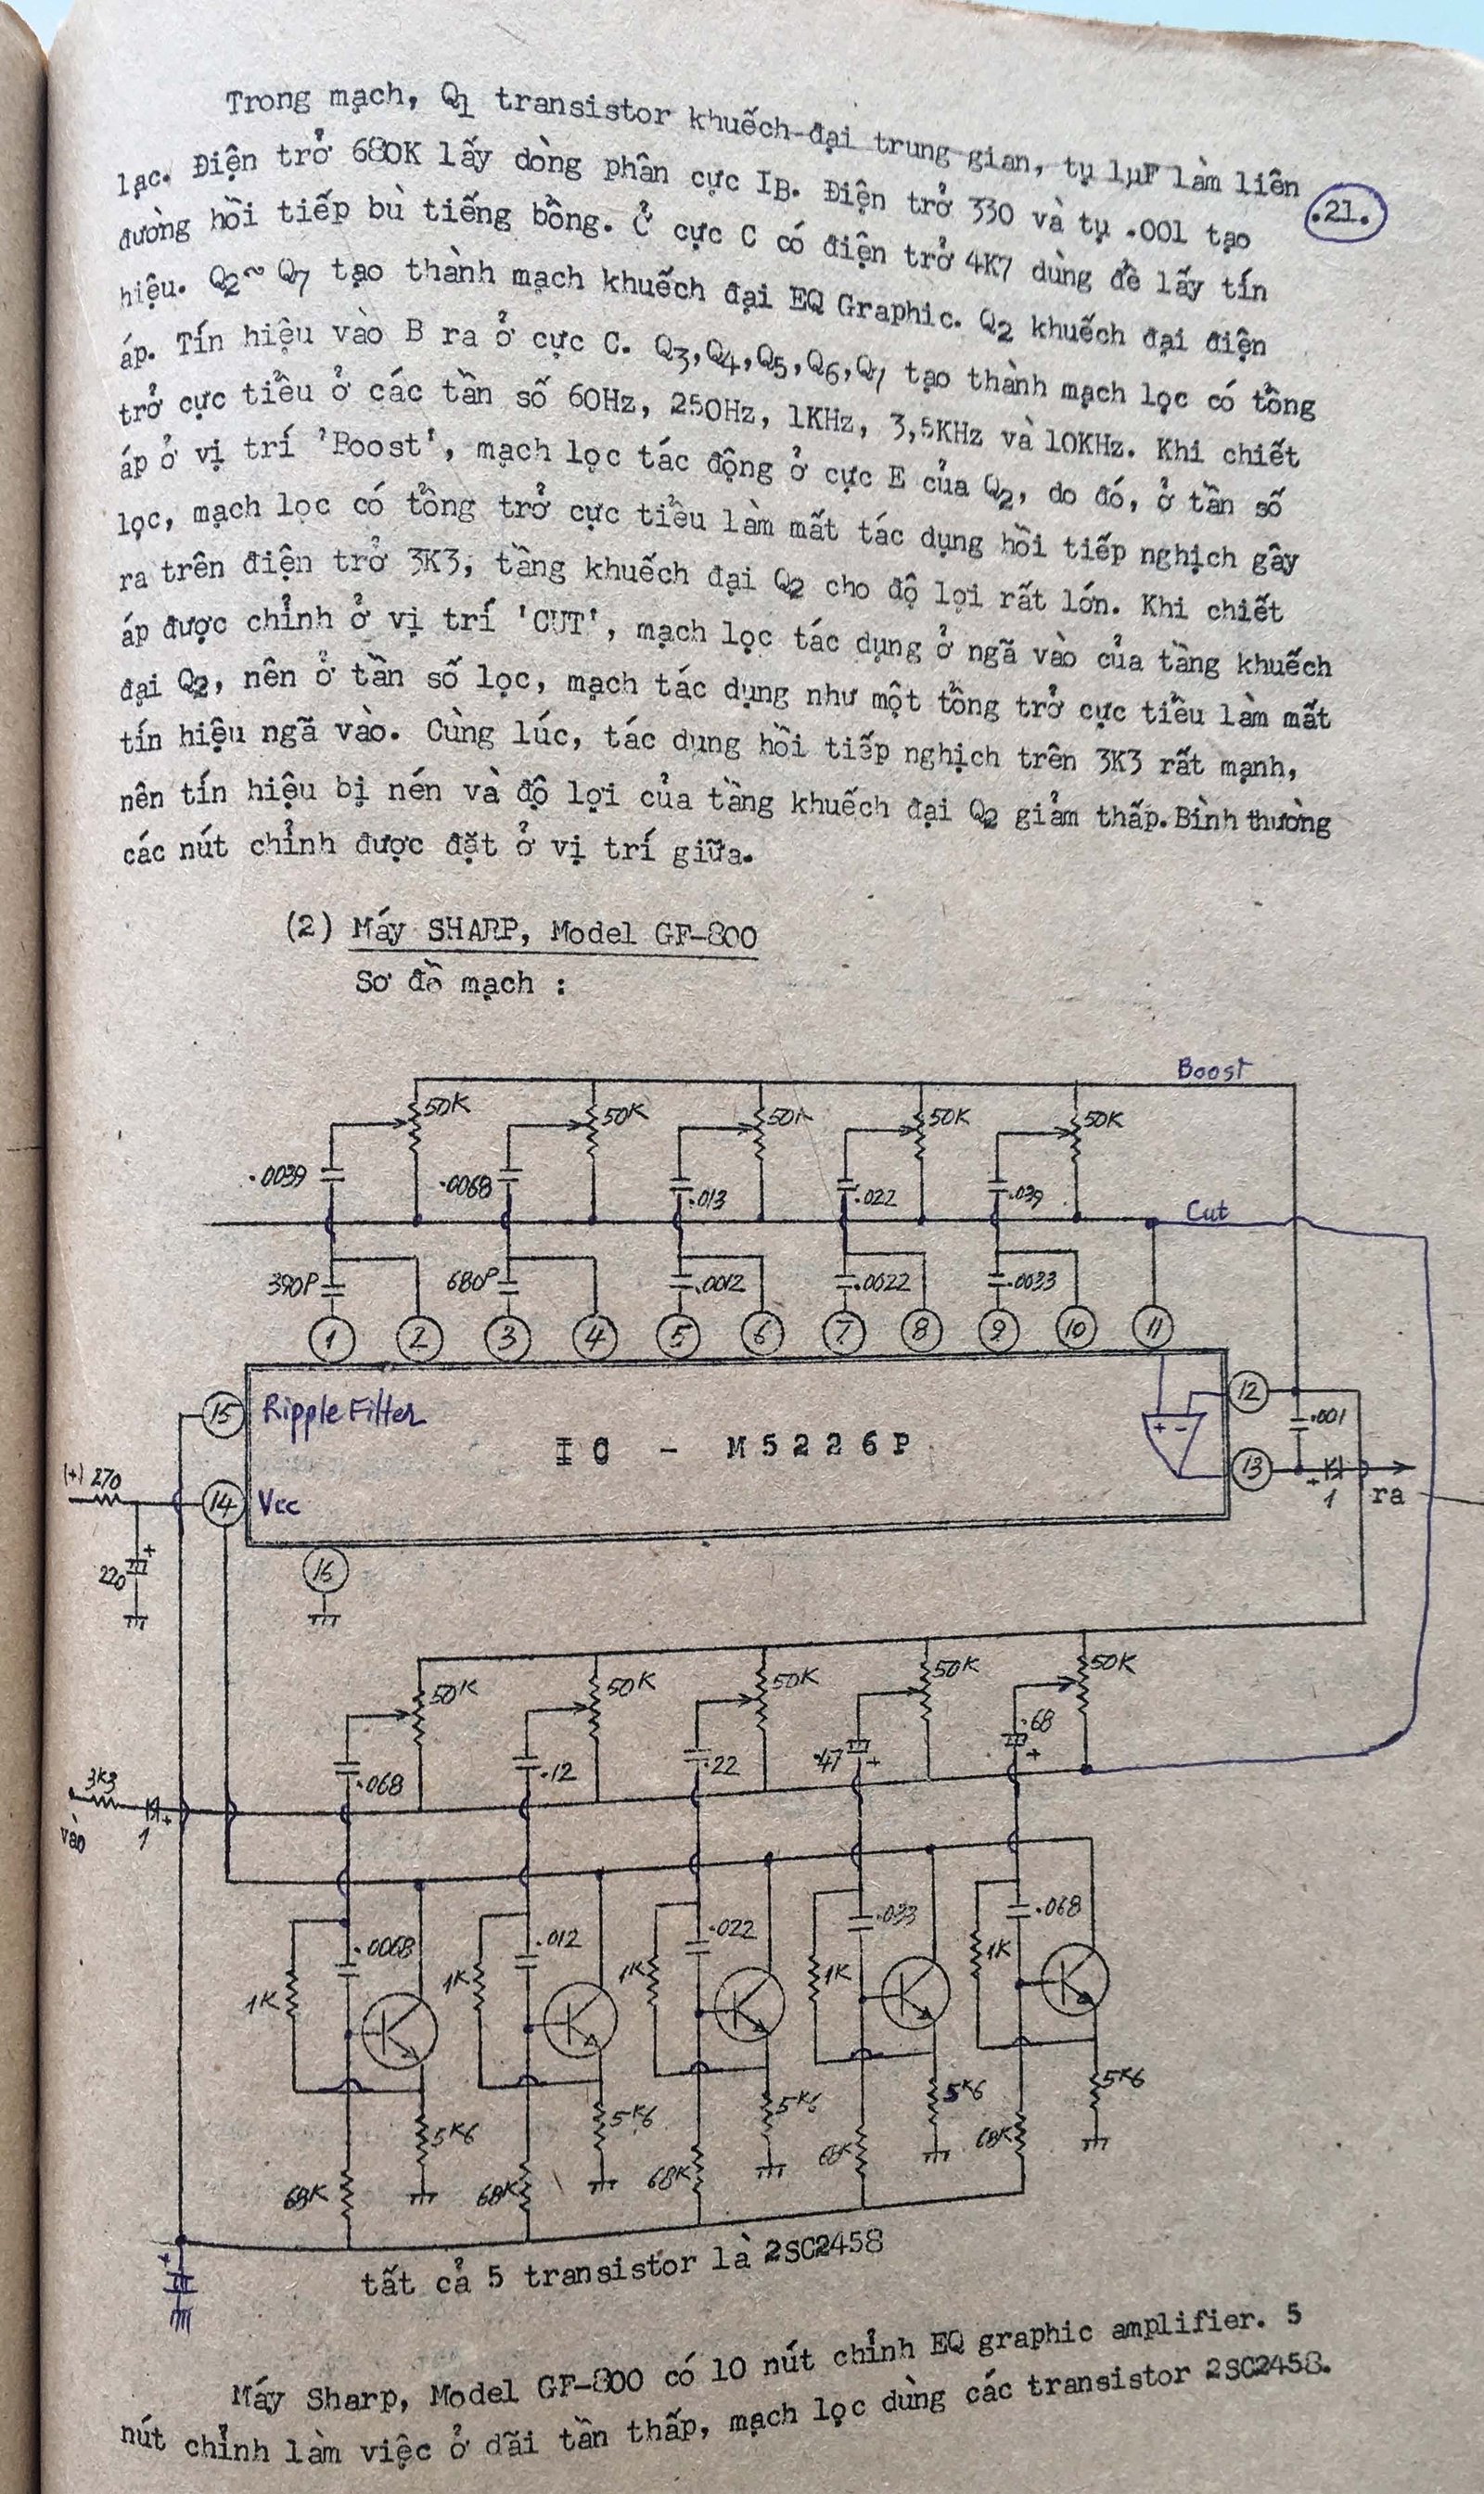 Trong mạch, Q1 transistor khuếch-đại trung gian, tụ 1µF làm liên
lạc. Điện trở 680K lấy dòng phân cực IB. Điện trở 330 và tụ .001 tạo
.21.
đường hồi tiếp bù tiếng bồng. Ở cực C có điện trở 4K7 dùng để lấy tín
hiệu. Q2~Q7 tạo thành mạch khuếch đại EQ Graphic. Q2 khuếch đại điện
áp. Tín hiệu vào B ra ở cực C. Q3,Q4,Q5,Q6,Q7 tạo thành mạch lọc có tổng
trở cực tiểu ở các tần số 60Hz, 250Hz, 1KHz, 3,5KHz và 10KHz. Khi chiết
áp ở vị trí 'Boost', mạch lọc tác động ở cực E của Q2, do đó, ở tần số
lọc, mạch lọc có tổng trở cực tiểu làm mất tác dụng hồi tiếp nghịch gây
ra trên điện trở 3K3, tầng khuếch đại Q2 cho độ lợi rất lớn. Khi chiết
áp được chỉnh ở vị trí 'CUT', mạch lọc tác dụng ở ngã vào của tầng khuếch
đại Q2, nên ở tần số lọc, mạch tác dụng như một tổng trở cực tiểu làm mất
tín hiệu ngã vào. Cùng lúc, tác dụng hồi tiếp nghịch trên 3K3 rất mạnh,
nên tín hiệu bị nén và độ lợi của tầng khuếch đại Q2 giảm thấp. Bình thường
các nút chỉnh được đặt ở vị trí giữa.
(2) Máy SHARP, Model GF-800
Sơ đồ mạch :
Boost
50K 50K 50K 50K 50K
.0039 .0068 .013 .022 .039
Cut
390P 680P .0012 .0022 .0033
1 2 3 4 5 6 7 8 9 10 11
15 Ripple Filter
12
.001
IC - M5226P
+ -
(+) 270
14 Vcc
13
+ 1 ra
220 +
16
50K 50K 50K 50K 50K
.068 .12 .22 .47 + .68 +
3K3
vào 1 +
.0068 .012 .022 .033 .068
1K 1K 1K 1K 1K
5K6 5K6 5K6 5K6 5K6
68K 68K 68K 68K 68K
+
tất cả 5 transistor là 2SC2458
Máy Sharp, Model GF-800 có 10 nút chỉnh EQ graphic amplifier. 5
nút chỉnh làm việc ở dãi tần thấp, mạch lọc dùng các transistor 2SC2458.